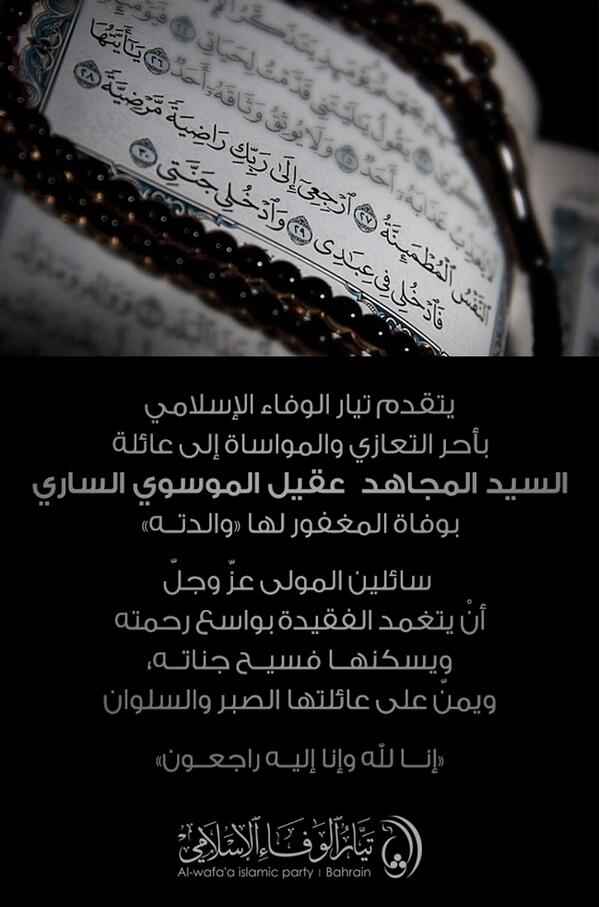 يَقُولُ يَٰلَيْتَنِى قَدَّمْتُ لِحَيَاتِى ٢٤ فَيَوْمَئِذٍ
لَّا يُعَذِّبُ عَذَابَهُۥٓ أَحَدٌ ٢٥ وَلَا يُوثِقُ وَثَاقَهُۥٓ أَحَدٌ ٢٦ يَٰٓأَيَّتُهَا
ٱلنَّفْسُ ٱلْمُطْمَئِنَّةُ ٢٧ ٱرْجِعِىٓ إِلَىٰ رَبِّكِ رَاضِيَةً مَّرْضِيَّةً ٢٨
فَٱدْخُلِى فِى عِبَٰدِى ٢٩ وَٱدْخُلِى جَنَّتِى ٣٠
يتقدم تيار الوفاء الإسلامي
بأحر التعازي والمواساة إلى عائلة
السيد المجاهد عقيل الموسوي الساري
بوفاة المغفور لها «والدتـه»
سائلين المولى عزّ وجلّ
أنْ يتغمد الفقيدة بواسع رحمته
ويسكنهـا فسيـح جناتـه،
ويمنّ على عائلتها الصبر والسلوان
«إنـا للّه وإنا إليـه راجعـون»
تيار الوفاء الإسلامي
Al-wafa'a islamic party | Bahrain